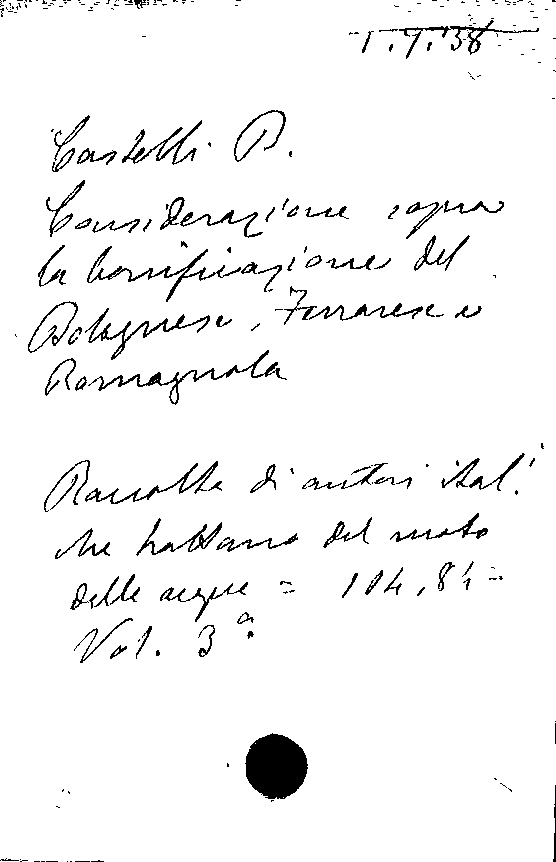 1.7.'38
Castelli B.
Considerazione sopra
la bonificazione del
Bolognese, Ferrarese e
Romagnola
Raccolta di autori ital.i
che trattano del moto
delle acque = 104,84 =
Vol. 3ª